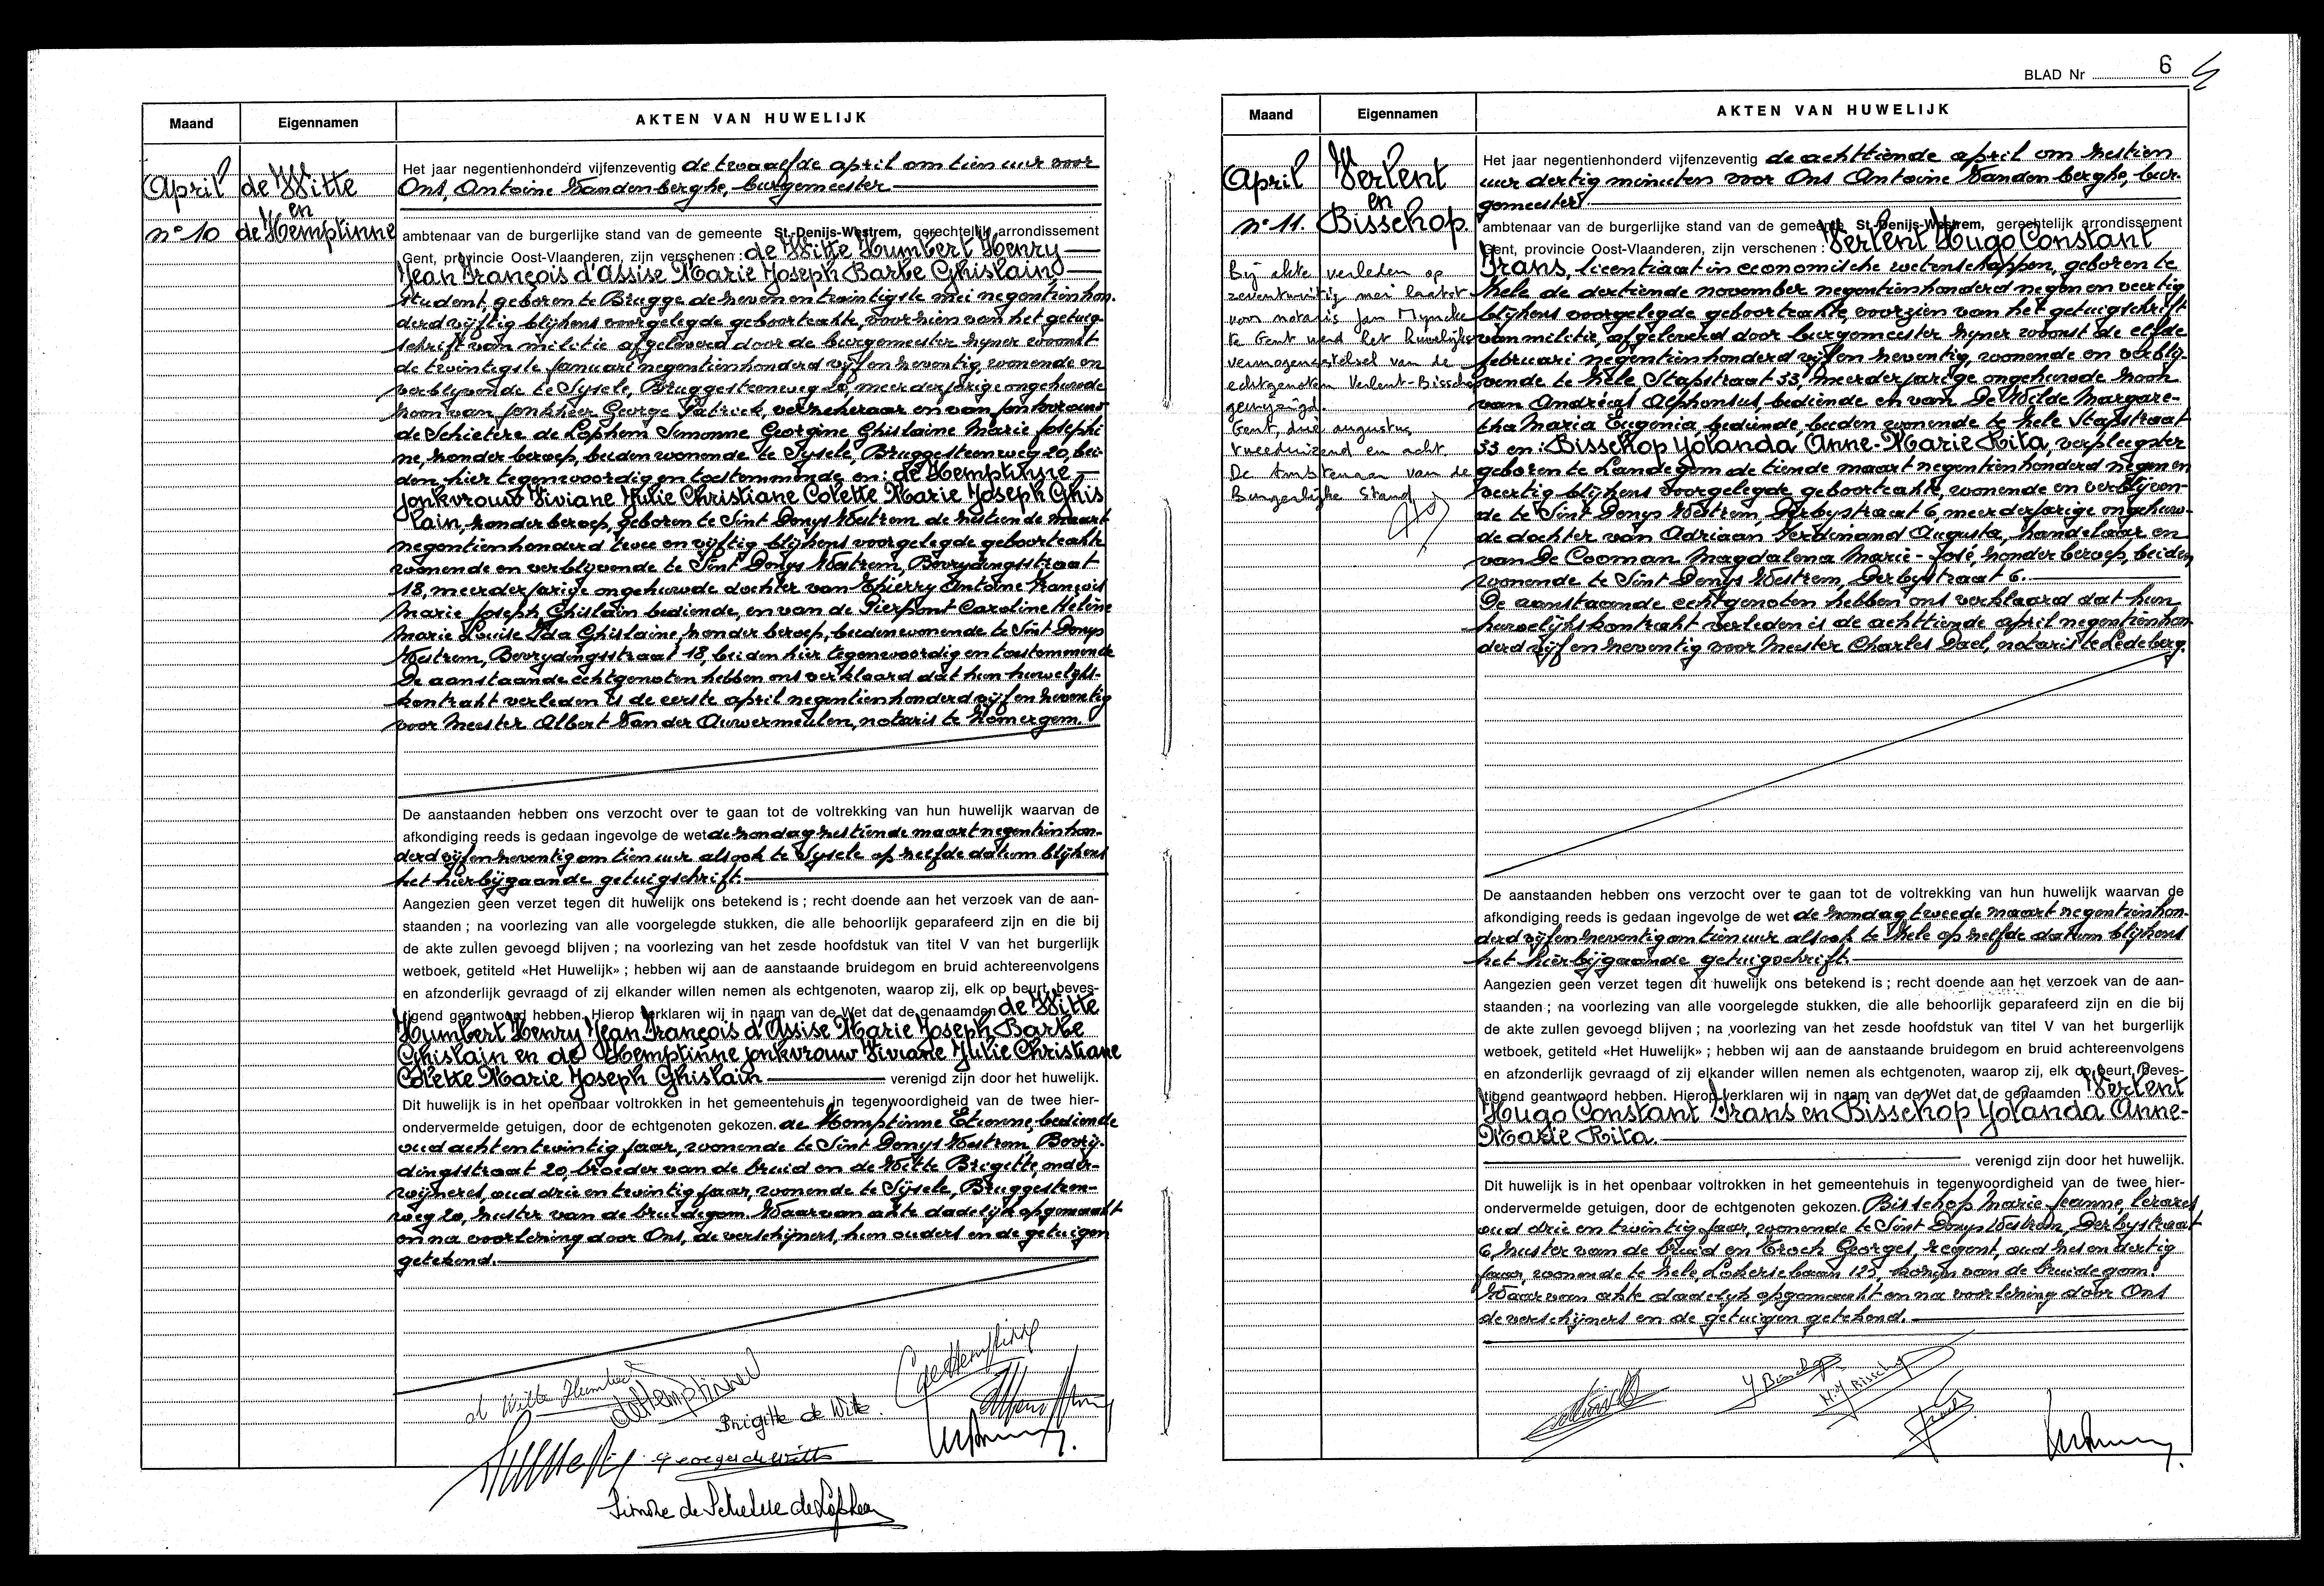 Maand
Eigennamen
AKTEN VAN HUWELIJK
April
n° 10
de Witte
en
de Hemptinne
Het jaar negentienhonderd vijfenzeventig de twaalfde april om tien uur voor
Ons, Antoine Vandenberghe, burgemeester
ambtenaar van de burgerlijke stand van de gemeente St-Denijs-Westrem, gerechtelijk arrondissement
Gent, provincie Oost-Vlaanderen, zijn verschenen : de Witte Humbert Henry
Jean François d'Assise Marie Joseph Barbe Ghislain
student, geboren te Brugge de zeven en twintigste mei negentienhon-
derd vijftig blijkens voorgelegde geboorteakte, voorzien van het getuig-
schrift van militie afgeleverd door de burgemeester zijner woonst
de twintigste januari negentienhonderd vijf en zeventig, wonende en
verblijvende te Sysele, Bruggesteenweg 20, meerderjarige ongehuwde
zoon van jonkheer George Patrick, verzekeraar en van jonkvrouw
de Schietere de Lophem Simonne Georgine Ghislaine Marie Josephi
ne, zonder beroep, beiden wonende te Sysele, Bruggesteenweg 20, bei-
den hier tegenwoordig en toestemmende en : de Hemptinne
jonkvrouw Viviane Julie Christiane Colette Marie Joseph Ghis
lain, zonder beroep, geboren te Sint Denys Westrem de zestiende maart
negentienhonderd twee en vijftig blijkens voorgelegde geboorteakte
wonende en verblijvende te Sint Denys Westrem, Bevrydingsstraat
18, meerderjarige ongehuwde dochter van Thierry Antoine François
Marie Joseph Ghislain bediende, en van de Pierpont Caroline Hélène
Marie Louise Ida Ghislaine, zonder beroep, beiden wonende te Sint Denys
Westrem, Bevrydingsstraat 18, beiden hier tegenwoordig en toestemmende
De aanstaande echtgenoten hebben ons verklaard dat hun huwelijks-
kontrakt verleden is de eerste april negentienhonderd vijf en zeventig
voor Meester Albert Van der Auwermeulen, notaris te Zomergem.
De aanstaanden hebben ons verzocht over te gaan tot de voltrekking van hun huwelijk waarvan de
afkondiging reeds is gedaan ingevolge de wet de zondag zestiende maart negentienhon-
derd vijf en zeventig om tien uur alsook te Sysele op zelfde datum blijkens
het hierbijgaande getuigschrift.
Aangezien geen verzet tegen dit huwelijk ons betekend is ; recht doende aan het verzoek van de aan-
staanden ; na voorlezing van alle voorgelegde stukken, die alle behoorlijk geparafeerd zijn en die bij
de akte zullen gevoegd blijven ; na voorlezing van het zesde hoofdstuk van titel V van het burgerlijk
wetboek, getiteld «Het Huwelijk» ; hebben wij aan de aanstaande bruidegom en bruid achtereenvolgens
en afzonderlijk gevraagd of zij elkander willen nemen als echtgenoten, waarop zij, elk op beurt, beves-
tigend geantwoord hebben. Hierop verklaren wij in naam van de Wet dat de genaamden de Witte
Humbert Henry Jean François d'Assise Marie Joseph Barbe
Ghislain en de Hemptinne jonkvrouw Viviane Julie Christiane
Colette Marie Joseph Ghislain verenigd zijn door het huwelijk.
Dit huwelijk is in het openbaar voltrokken in het gemeentehuis in tegenwoordigheid van de twee hier-
ondervermelde getuigen, door de echtgenoten gekozen. de Hemptinne Etienne, bediende
oud acht en twintig jaar, wonende te Sint Denys Westrem Bevrij-
dingsstraat 20, broeder van de bruid en de Witte Brigitte, onder-
wijzeres, oud drie en twintig jaar, wonende te Sijsele, Bruggesteen-
weg 20, zuster van de bruidegom. Waarvan akte dadelijk opgemaakt
en na voorlezing door Ons, de verschijners, hun ouders en de getuigen
getekend.
de Witte Humbert
deHemptinne
CdeHemptinne
Brigitte de Witte.
Georges de Witte
Simone de Schietere de Lophem
BLAD Nr 6
Maand
Eigennamen
AKTEN VAN HUWELIJK
April
n° 11.
Verlent
en
Bisschop
Bij akte verleden op
zeventwintig mei laatst
voor notaris Jan Myncke
te Gent werd het huwelijks-
vermogensstelsel van de
echtgenoten Verlent-Bisschop
gewijzigd.
Gent, drie augustus
tweeduizend en acht.
De Ambtenaar van de
Burgerlijke Stand
Het jaar negentienhonderd vijfenzeventig de achttiende april om zestien
uur dertig minuten voor Ons Antoine Vandenberghe, bur-
gemeester
ambtenaar van de burgerlijke stand van de gemeente St-Denijs-Westrem, gerechtelijk arrondissement
Gent, provincie Oost-Vlaanderen, zijn verschenen : Verlent Hugo Constant
Frans, licentiaat in economische wetenschappen, geboren te
Zele de dertiende november negentienhonderd negen en veertig
blijkens voorgelegde geboorteakte, voorzien van het getuigschrift
van militie, afgeleverd door burgemeester zijner woonst de elfde
februari negentienhonderd vijf en zeventig, wonende en verblij-
vende te Zele Stapstraat 33, meerderjarige ongehuwde zoon
van Andréas Alphonsus, bediende en van De Wilde Margare-
tha Maria Eugenia, bediende, beiden wonende te Zele Stapstraat
33 en : Bisschop Yolanda Anne-Marie Rita, verpleegster
geboren te Landegem de tiende maart negentienhonderd negen en
veertig blijkens voorgelegde geboorteakte, wonende en verblijven-
de te Sint Denys Westrem, Derbystraat 6, meerderjarige ongehuw-
de dochter van Adriaan Ferdinand Augusta, handelaar en
van De Cooman Magdalena Marie-José, zonder beroep, beiden
wonende te Sint Denys Westrem, Derbystraat 6.
De aanstaande echtgenoten hebben ons verklaard dat hun
huwelijkskontrakt verleden is de achttiende april negentienhon-
derd vijf en zeventig voor Meester Charles Dael, notaris te Ledeberg.
De aanstaanden hebben ons verzocht over te gaan tot de voltrekking van hun huwelijk waarvan de
afkondiging reeds is gedaan ingevolge de wet de zondag tweede maart negentienhon-
derd vijf en zeventig om tien uur alsook te Zele op zelfde datum blijkens
het hierbijgaande getuigschrift.
Aangezien geen verzet tegen dit huwelijk ons betekend is ; recht doende aan het verzoek van de aan-
staanden ; na voorlezing van alle voorgelegde stukken, die alle behoorlijk geparafeerd zijn en die bij
de akte zullen gevoegd blijven ; na voorlezing van het zesde hoofdstuk van titel V van het burgerlijk
wetboek, getiteld «Het Huwelijk» ; hebben wij aan de aanstaande bruidegom en bruid achtereenvolgens
en afzonderlijk gevraagd of zij elkander willen nemen als echtgenoten, waarop zij, elk op beurt, beves-
tigend geantwoord hebben. Hierop verklaren wij in naam van de Wet dat de genaamden Verlent
Hugo Constant Frans en Bisschop Yolanda Anne-
Marie Rita.
verenigd zijn door het huwelijk.
Dit huwelijk is in het openbaar voltrokken in het gemeentehuis in tegenwoordigheid van de twee hier-
ondervermelde getuigen, door de echtgenoten gekozen. Bisschop Marie Jeanne, lerares
oud drie en twintig jaar, wonende te Sint Denys Westrem, Derbystraat
6, zuster van de bruid en Troch Georges, regent, oud zes en dertig
jaar, wonende te Zele, Lokersebaan 125, kozijn van de bruidegom.
Waarvan akte dadelijk opgemaakt en na voorlezing door Ons
de verschijners en de getuigen getekend.
Y Bisschop
M.J Bisschop